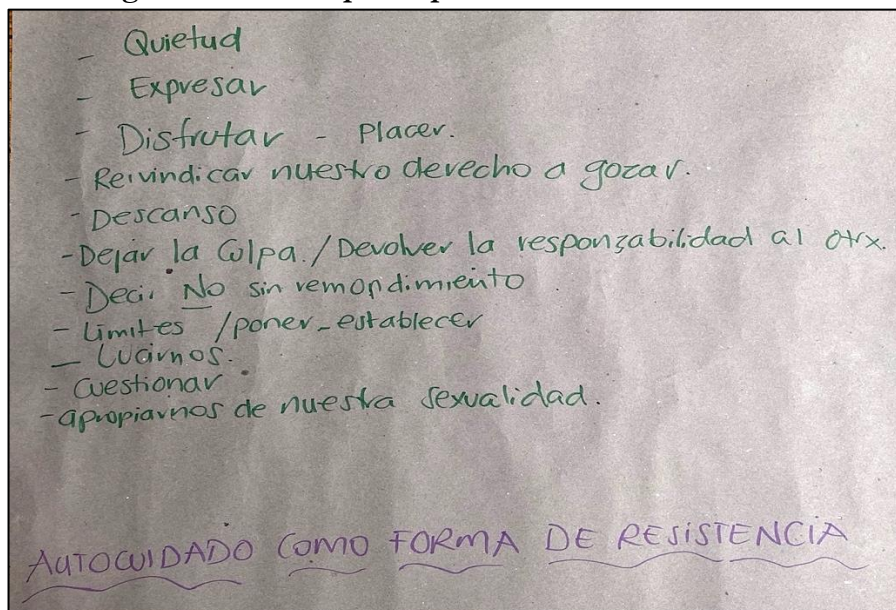 - Quietud
- Expresar
- Disfrutar - Placer.
- Reivindicar nuestro derecho a gozar.
- Descanso
- Dejar la Culpa. / Devolver la responzabilidad al otrx.
- Deci. No sin remordimiento
- Limites / poner - establecer
- Lucirnos.
- Cuestionar
- apropiarnos de nuestra sexualidad.
AUTOCUIDADO COMO FORMA DE RESISTENCIA